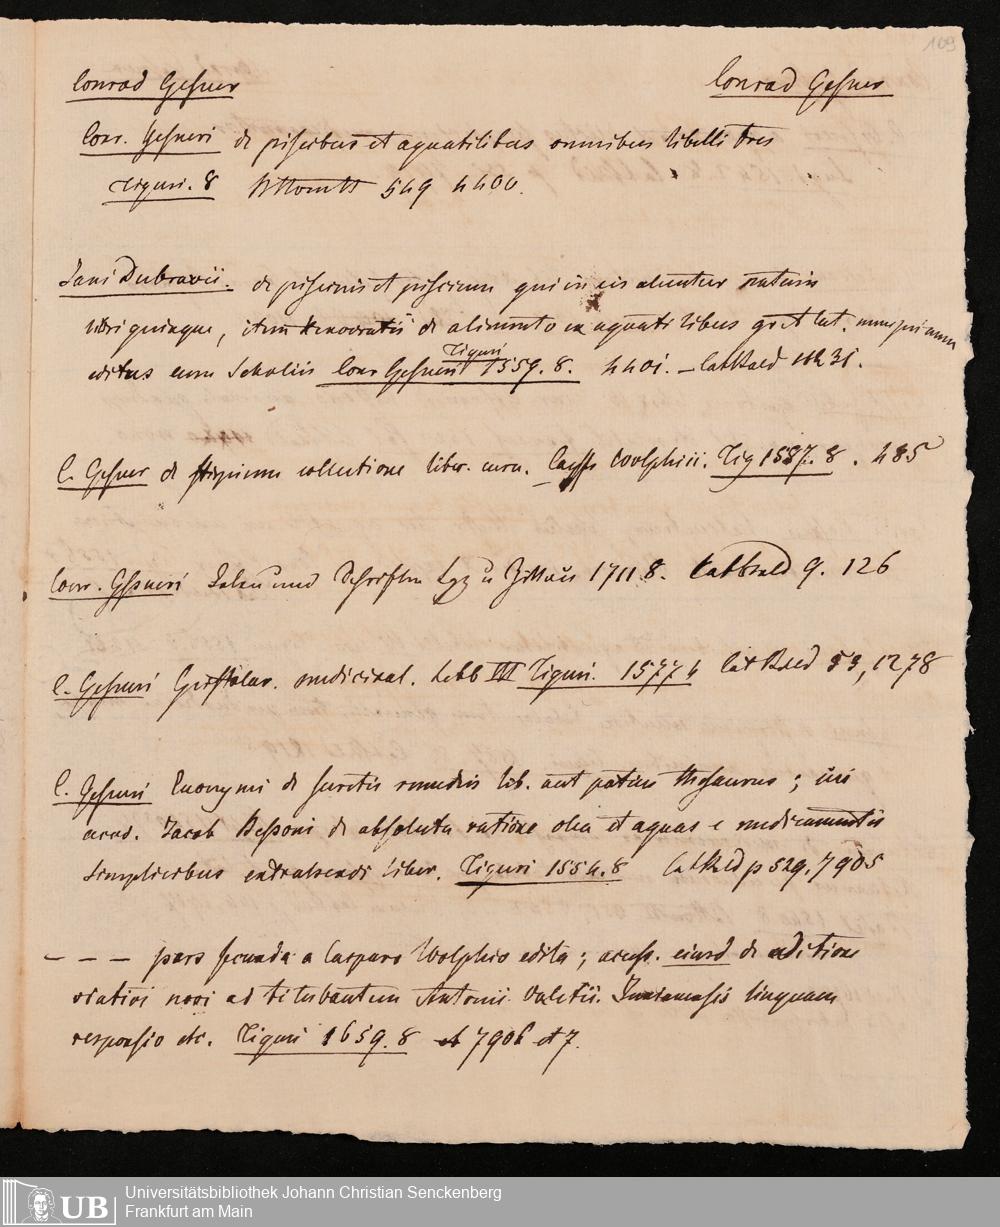 109
Conrad Gesner Conrad Gesner
Conr. Gesneri de piscibus et aquatilibus omnibus libelli tres
Tiguri. 8 549 4400.
Jani Dubravii. de piscinis et piscium qui in eis aluntur naturis
libri quinque, item Xenocratis de alimento ex aquatilibus gr et lat. nunc primum
editus cum Scholiis Conr Gesneri Tiguri 1559. 8. 4401. – Cat Rud
C. Gesner de stirpium collectione liber. cura. Casp Wolphii. Tig 1587. 8. 485
Conr. Gesneri Leben und Schriften Lpz u Zittau 1711 8. Cat 9. 126
C. Gesneri Epistolar. medicinal. Libb III Tiguri. 1577 4 Cat 53, 1278
C. Gesneri Euonymi de secretis remediis lib. aut potius thesaurus;
acced. Jacob Bessoni de absoluta ratione olea et aquas e medicamentis
simplicibus extrahendi liber. Tiguri 1554. 8 Cat p 529. 7905
– – – pars secunda a Casparo Wolphio edita; access. eiusd de
novi ad titubantem Antonii linguam
responsio etc. Tiguri 1659. 8 7906 et 7.
Universitätsbibliothek Johann Christian Senckenberg
UB Frankfurt am Main